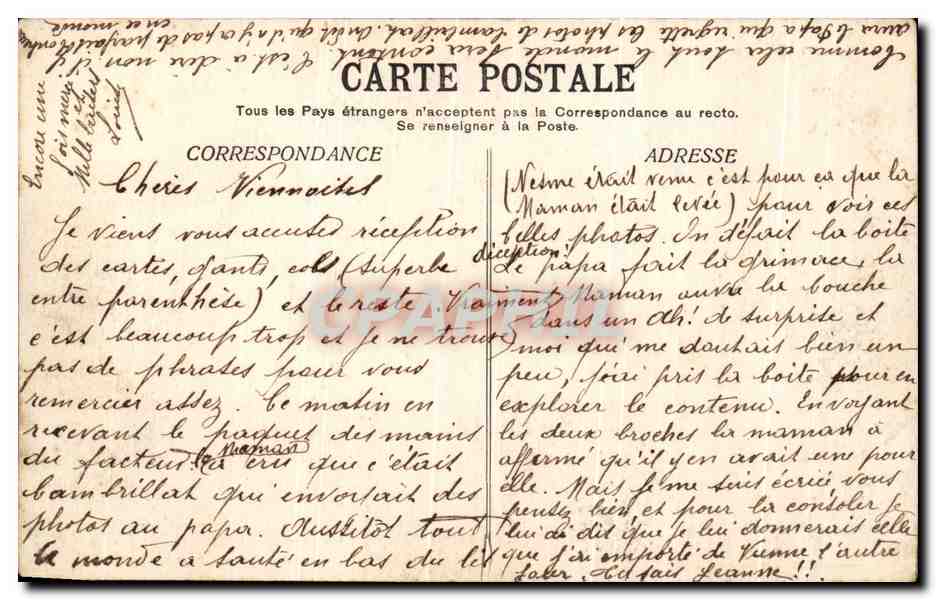 CARTE POSTALE
Tous les Pays étrangers n'acceptent pas la Correspondance au recto.
Se renseigner à la Poste.
CORRESPONDANCE
Chères Viennoises
Je viens vous accuser réception
des cartes, gants, cols (superbe
entre parenthèse) et le reste. Vraiment
c'est beaucoup trop et je ne trouve
pas de phrases pour vous
remercier assez. Ce matin en
recevant le paquet des mains
du facteur la Maman a cru que c'était
Cambrillat qui envoyait des
photos au papa. Aussitôt tout
le monde a sauté en bas du lit
ADRESSE
(Nesme était venu c'est pour ça que la
Maman était levée) pour voir ces
belles photos. On défait la boîte
déception:
Le papa fait la grimace, la
Maman ouvre la bouche
dans un Ah! de surprise et
moi qui me doutais bien un
peu, j'ai pris la boîte pour en
explorer le contenu. En voyant
les deux broches la maman à
affirmé qu'il y en avait une pour
elle. Mais je me suis écriée vous
pensez bien et pour la consoler je
lui ai dis que je lui donnerais celle
que j'ai emporté de Vienne l'autre
jour. Tu sais Jeanne!!
Comme cela tout le monde sera content. C'est à dire non il y
aura le Papa qui regrette les photos de Cambrillat. On dit qu'il n'y a pas de parfait bonheur
en ce monde
Encore une
fois merci
et
Mille baisers
CPAPHIL